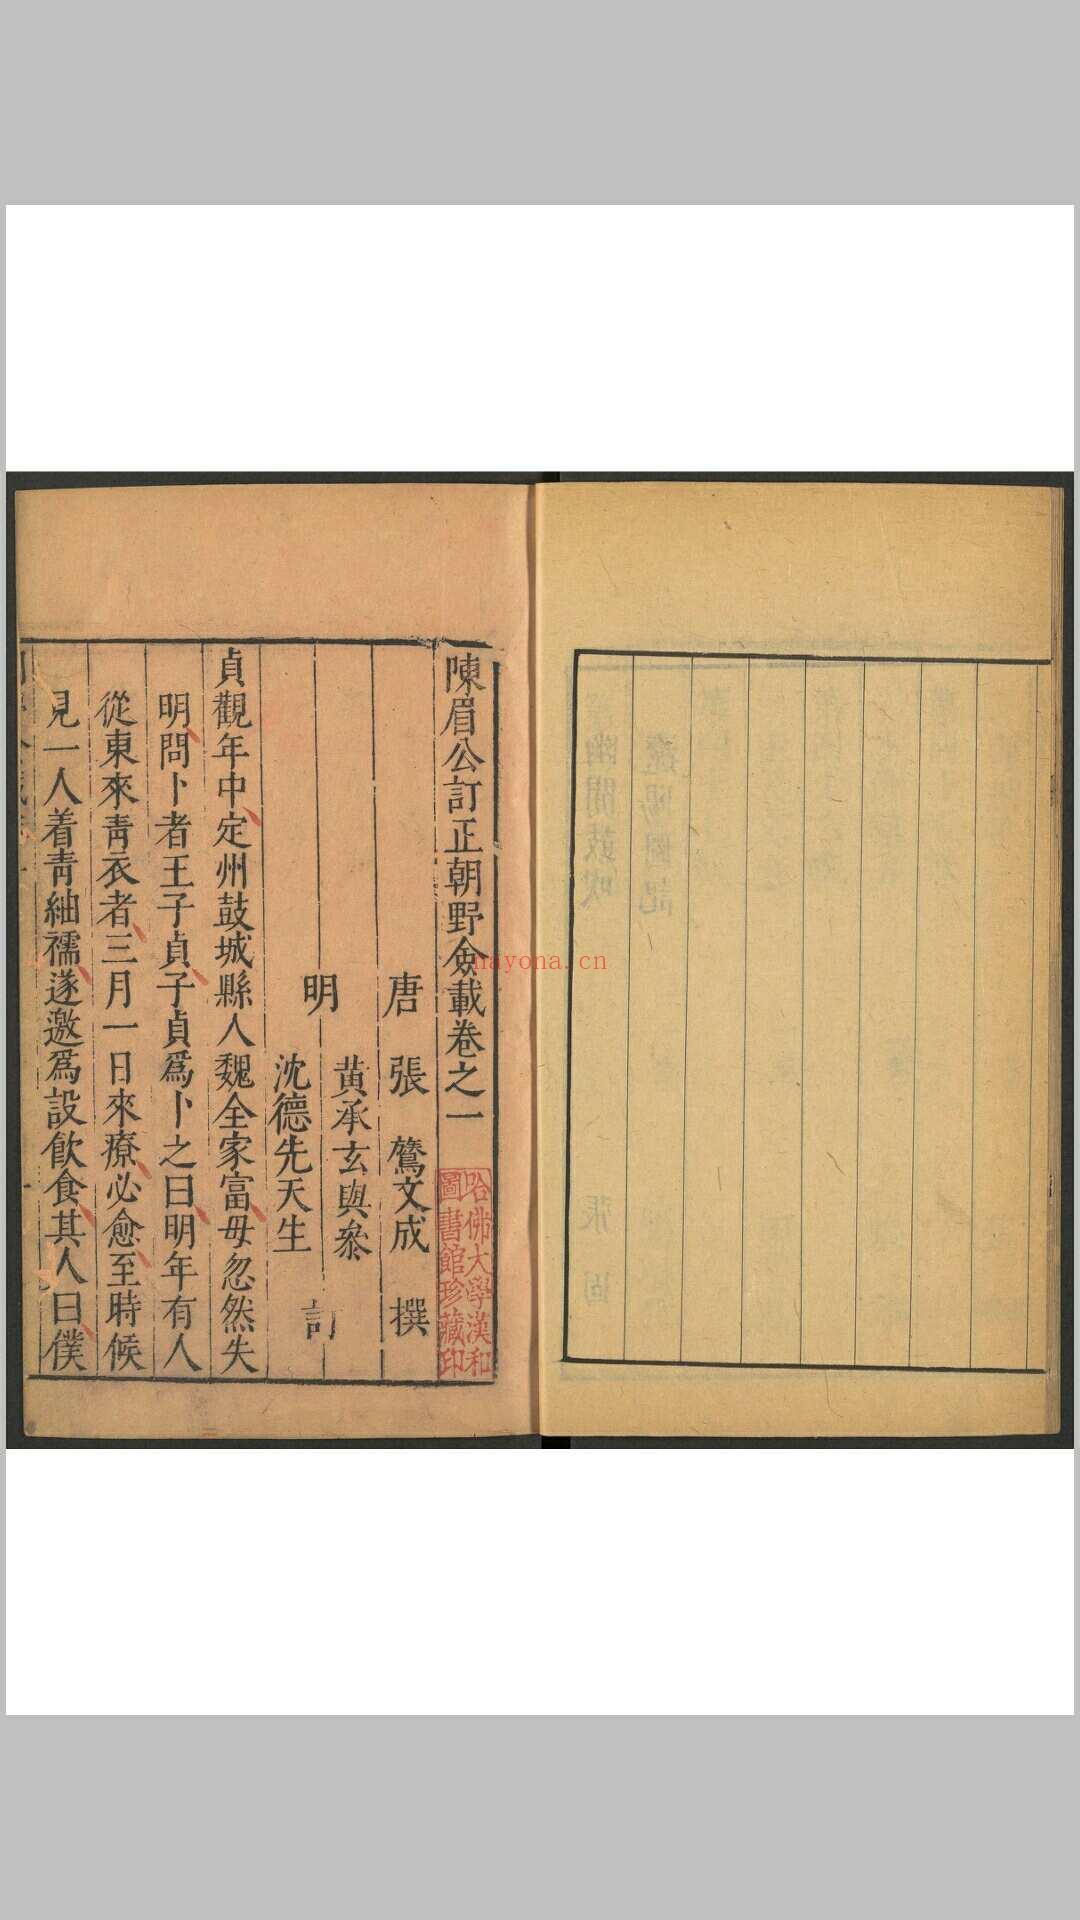 陳眉公訂正朝野僉載卷之一
唐 張 鷟文成 撰
明 黃承玄與參
沈德先天生 訂
貞觀年中定州鼓城縣人魏全家富母忽然失
明問卜者王子貞子貞爲卜之曰明年有人
從東來靑衣者三月一日來療必愈至時候
見一人着靑紬襦遂邀爲設飮食其人曰僕
哈佛大學漢和
圖書館珍藏印
nayona.cn